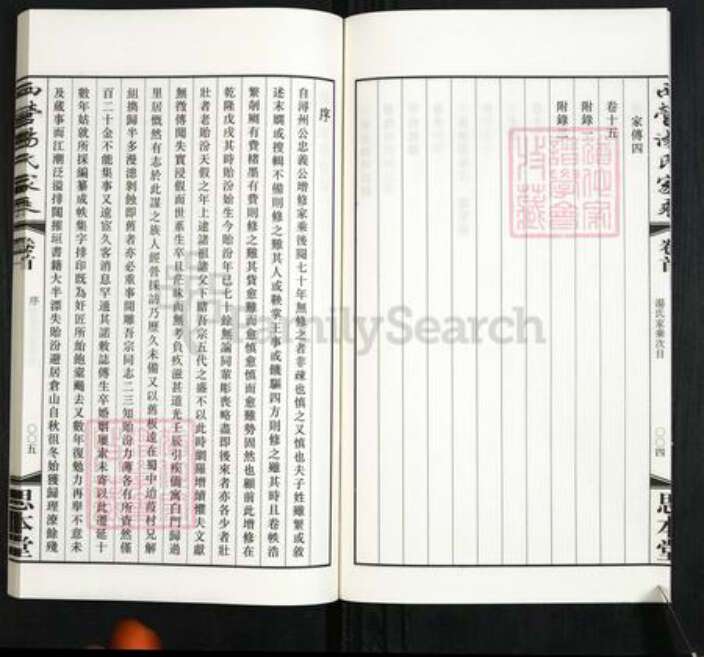 家傳四
卷十五
附錄一
附錄二
西營湯氏家乘
卷首
湯氏家乘次目
〇〇四
思本堂
序
自潯州公忠義公增修家乘後閱七十年無修之者非疎也慎之又慎也夫子姓雖繁或敘
述末嫺或搜輯不備則修之難其人或鞅掌王事或饑驅四方則修之難其時且卷帙浩
繁剞劂有費楮墨有費則修之難其貲愈難而愈慎愈慎而愈難勢固然也顧前此增修在
乾隆戊戌其時貽汾始生今貽汾年已七十餘無論同輩彫喪略盡即後來者亦各少者壯
壯者老貽汾天假之年上逮諸祖諸父下睹吾宗五代之盛不以此時網羅增續懼夫文獻
無徵傳聞失實浸假而世系生卒且茫昧而無考負疚滋甚道光壬辰引疾僑寓白門歸過
里居慨然有志於此謀之族人經營採訪乃歷久未備又以舊板遠在蜀中迨葭村兄解
組擕歸半多漫漶剝蝕即舊者亦必重事開雕吾宗同志二三知貽汾力薄各有所資然僅
百二十金不能集事又遠宦久客消息罕通其諸敕誌傳生卒婚姻屢索未寄以此遷延十
數年姑就所採編纂成帙集字排印既為奸匠所紿飽橐颺去又數年復勉力再舉不意未
及蕆事而江潮泛溢排闥摧垣書籍大半漂失貽汾避居倉山自秋徂冬始獲歸理潦餘殘
西營湯氏家乘
卷首
序
〇〇五
思本堂
FamilySearch